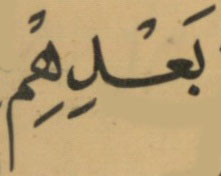 بَعْدِهِمْ